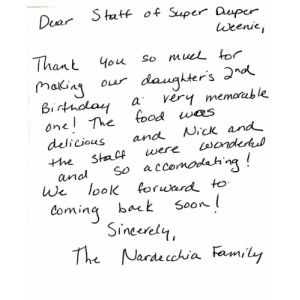 Dear Staff of Super Duper
Weenie,
Thank you so much for
making our daughter's 2nd
Birthday a very memorable
one! The food was
delicious and Nick and
the staff were wonderful
and so accomodating!
We look forward to
coming back soon!
Sincerely,
The Nardecchia Family